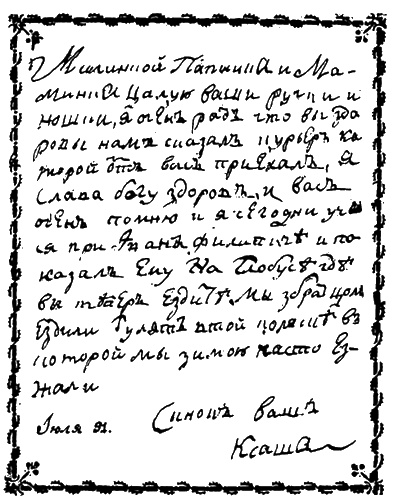 Милинкой Папинка и Ма-
минка Цалую ваши ручки и
ношки, я очень радъ что вы здо
ровы намъ сказалъ курьеръ ка
торой отъ васъ приехалъ, я
слава богу здоровъ и васъ
очень помню и я сегодни учи
ся при Иванъ филипичѣ и по
казалъ Ему На Глобусѣ гдѣ
вы тѣперь Ездитѣ мы збратцомъ
Ездили Гулять втой колясцѣ въ
которой мы зимою часто Ез-
жали
Синокъ вашъ
Июля
Ксаша